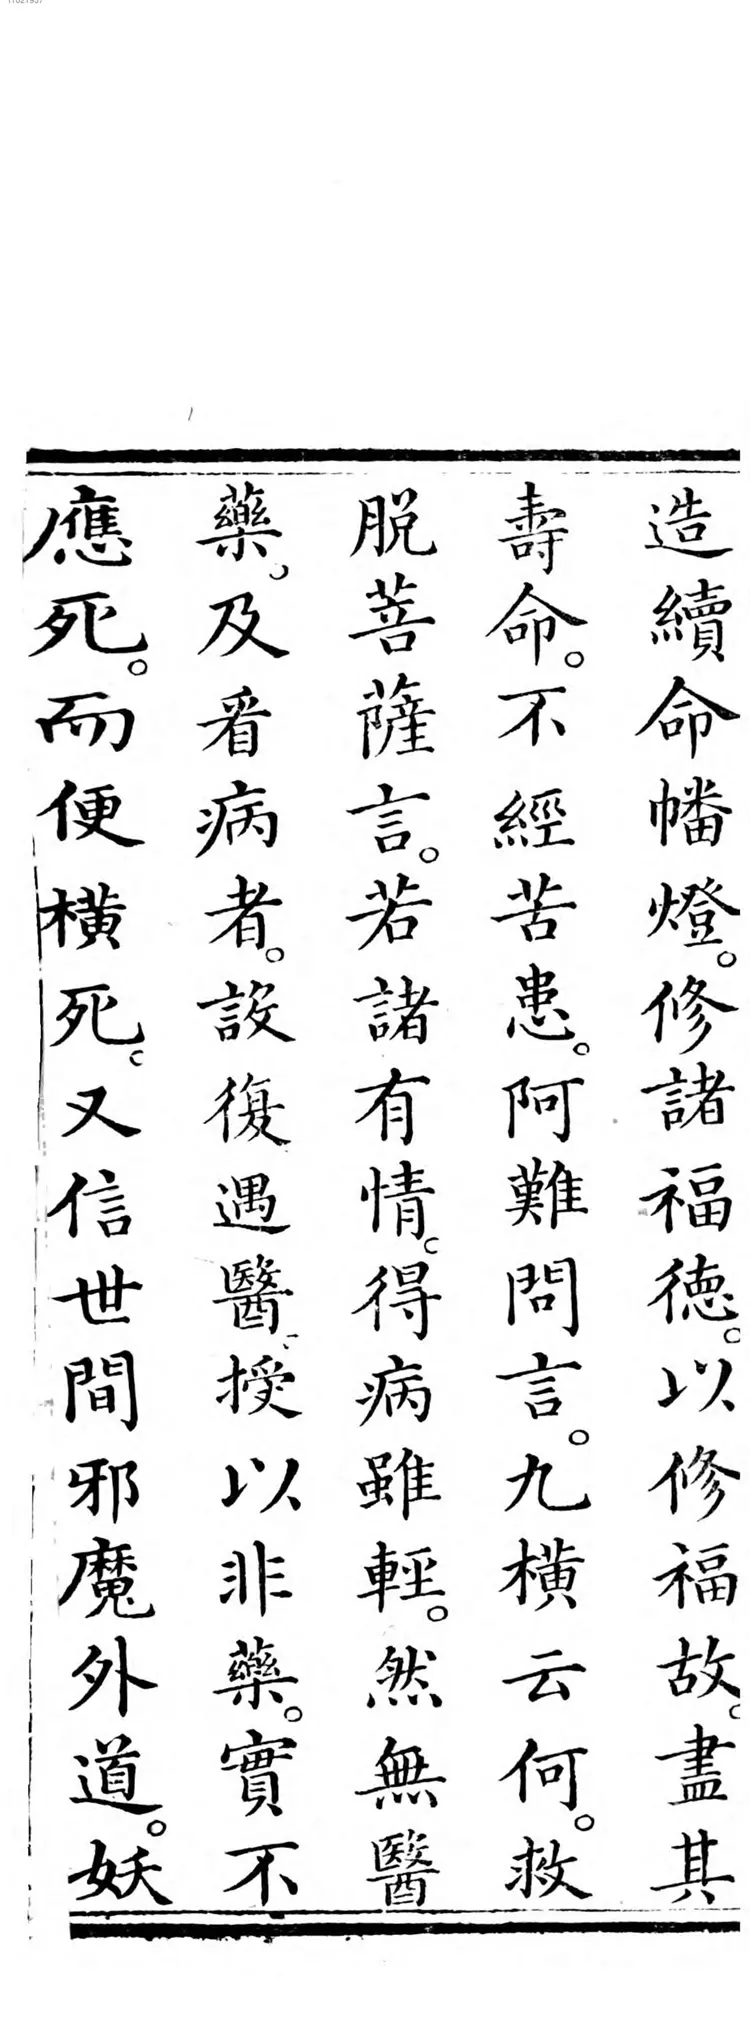 造續命幡燈。修諸福德。以修福故。盡其
壽命。不經苦患。阿難問言。九橫云何。救
脫菩薩言。若諸有情。得病雖輕。然無醫
藥。及看病者。設復遇醫。授以非藥。實不
應死。而便橫死。又信世間邪魔外道。妖